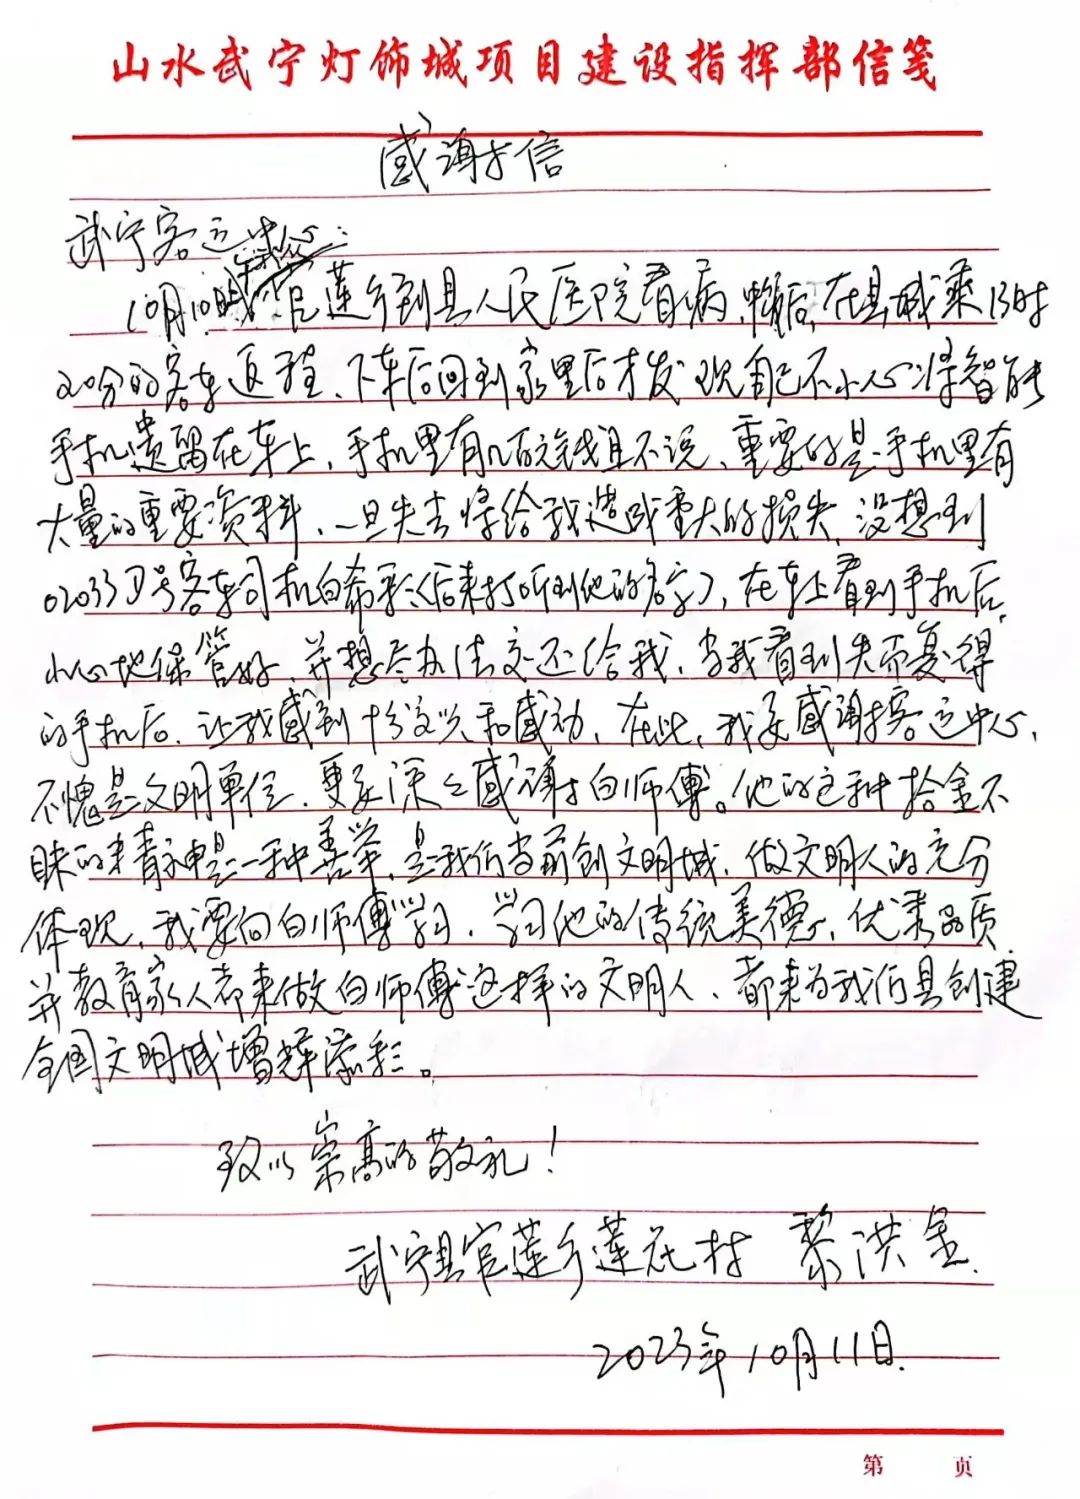 山水武宁灯饰城项目建设指挥部信笺
感谢信
武宁客运中心:
10月10日我官莲乡到县人民医院看病,　后,在县城乘13时
20分的客车返程、下车后回到家里后才发现自己不小心将智能
手机遗留在车上,手机里有几百元钱且不说、重要的是手机里有
大量的重要资料、一旦失去将给我造成重大的损失,没想到
02033D号客车司机白希彩(后来打听到他的名字),在车上看到手机后,
小心地保管好,并想尽办法交还给我,当我看到失而复得
的手机后,让我感到十分高兴和感动,在此,我要感谢客运中心,
不愧是文明单位,更要深深感谢白师傅。他的这种拾金不
昧的精神是一种善举,是我们当前创文明城,做文明人的充分
体现,我要向白师傅学习,学习他的传统美德,优秀品质,
并教育家人都来做白师傅这样的文明人,都来为我们县创建
全国文明城增辉添彩。
致以崇高的敬礼!
武宁县官莲乡莲花村 黎洪金.
2023年10月11日.
第 页